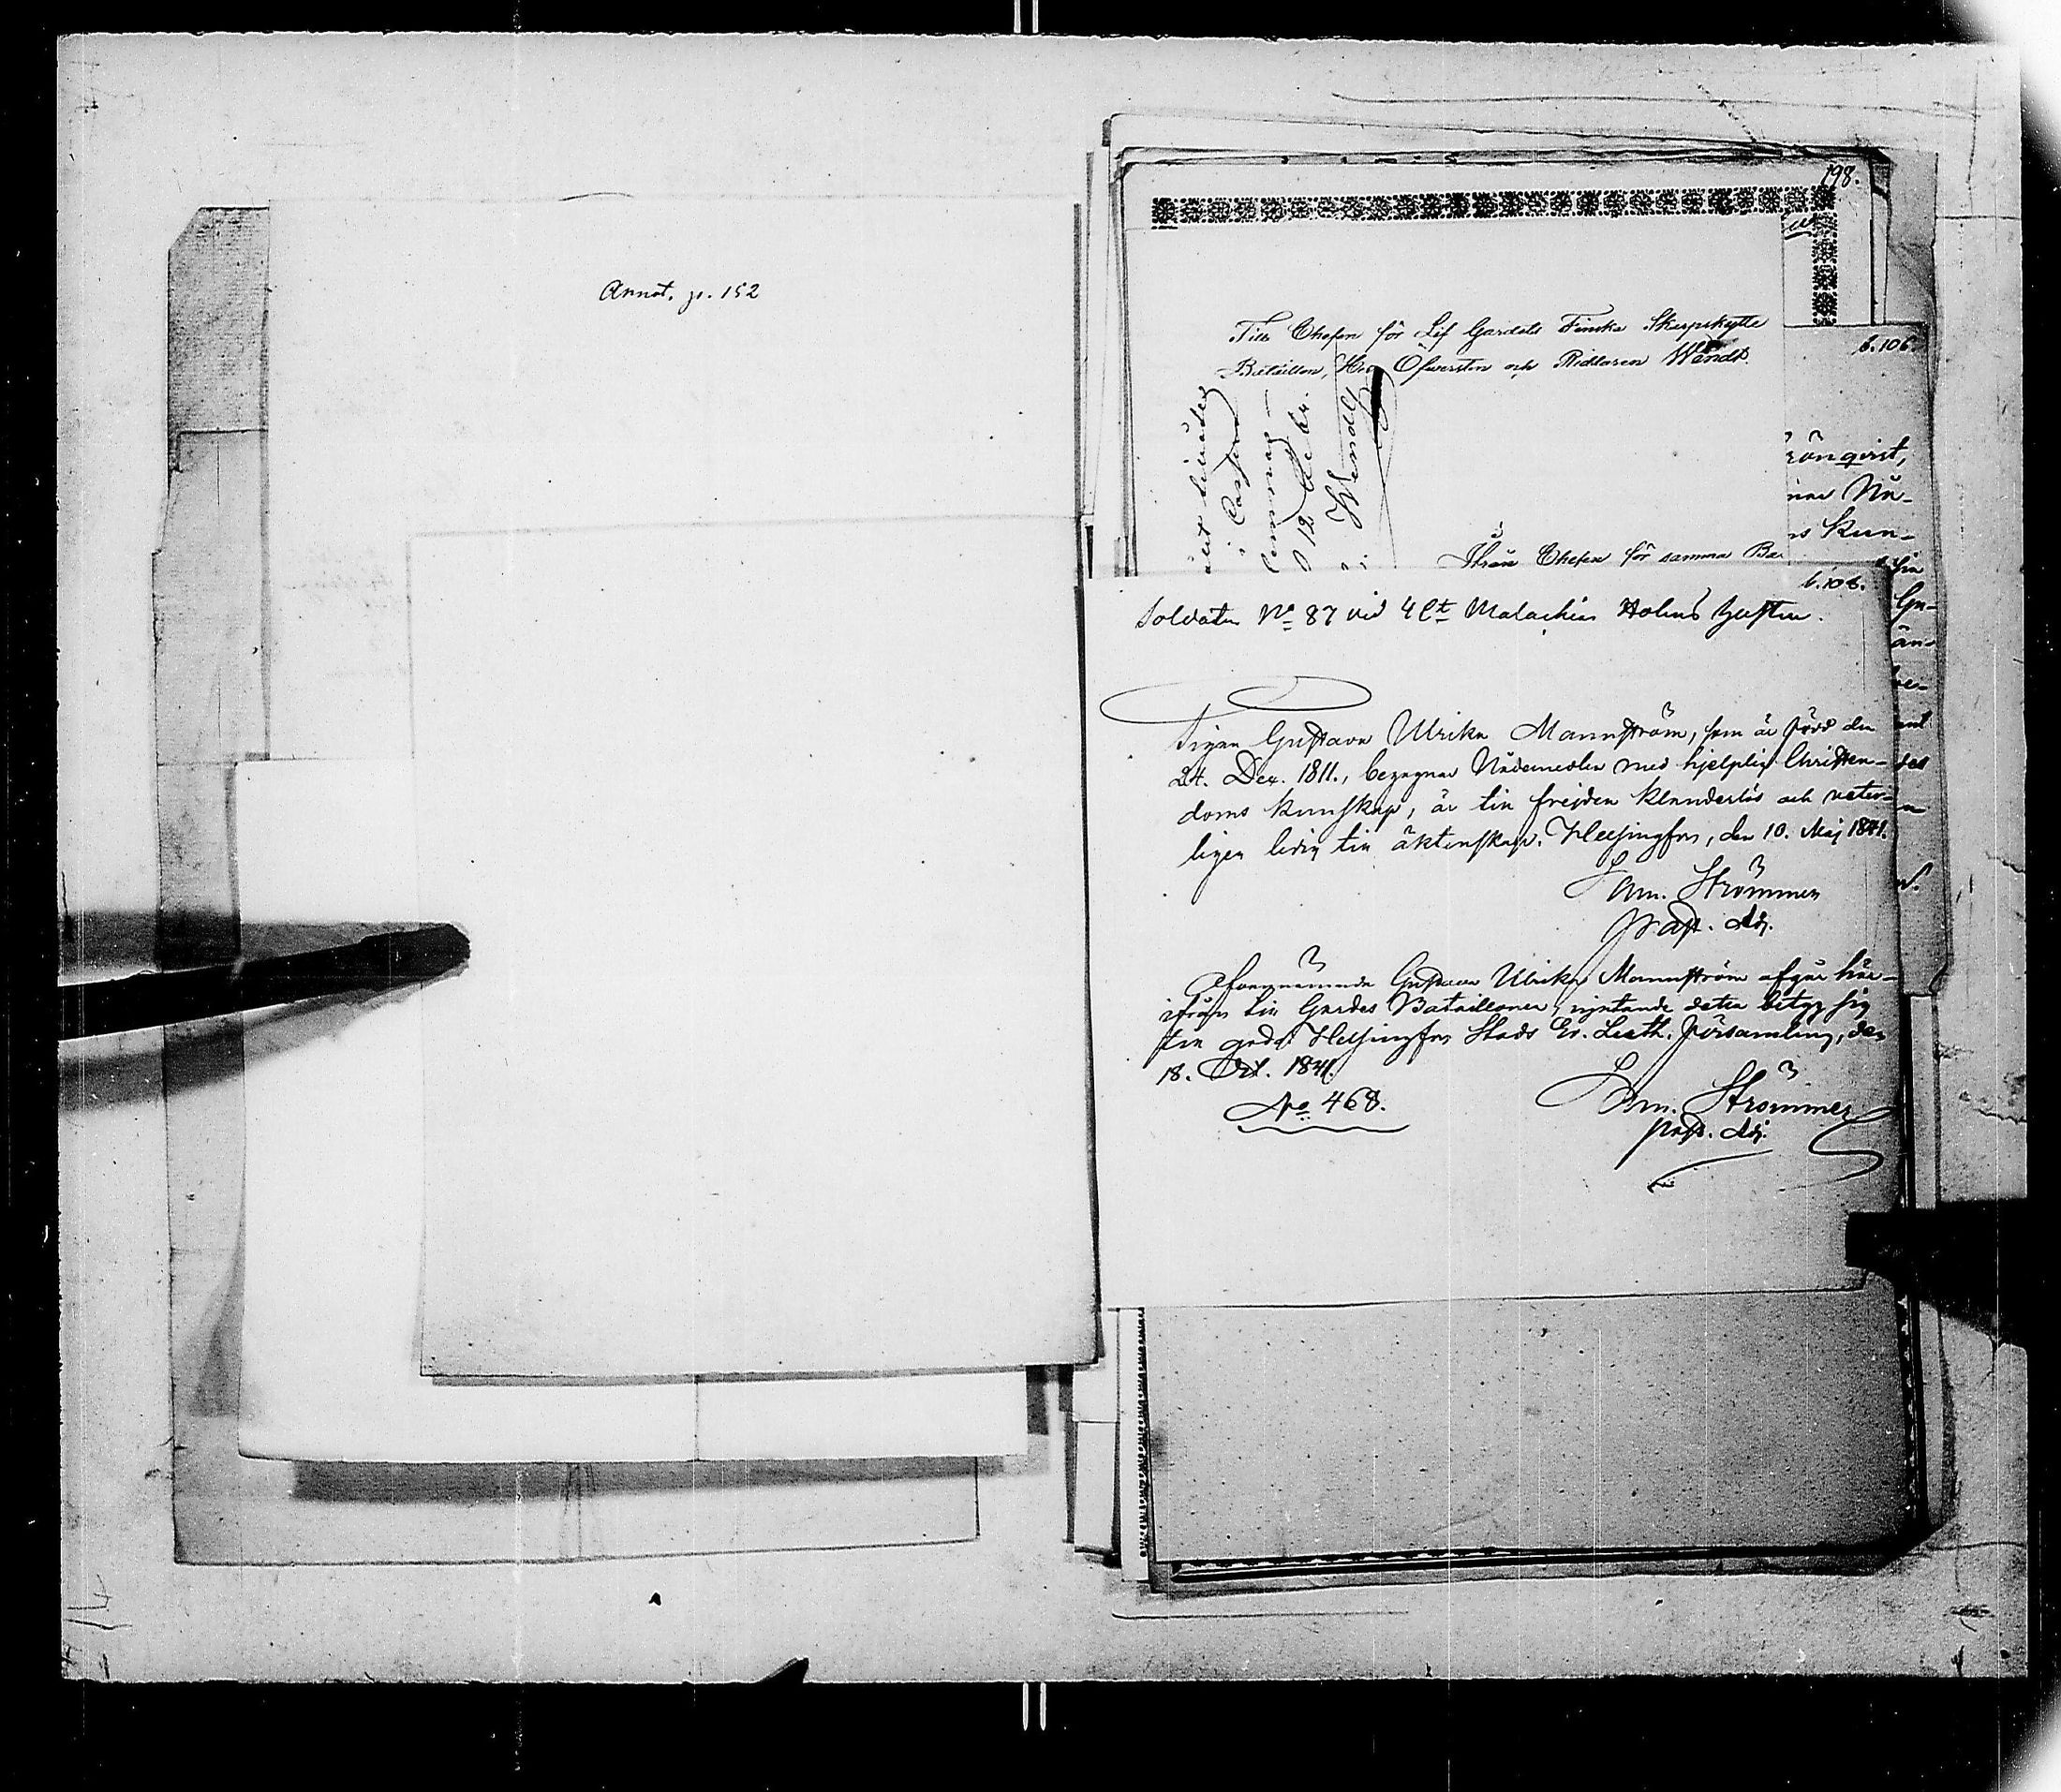 Annot. p. 152
198.
Till Chefen för Lif Gardets Finska Skarpskytte
Bataillon, Herr Öfwersten och Riddaren Wendt.
b. 106.
12
Wendt
Ifrån Chefen för samma Ba
rönqvist,
Nå-
s kun-
b. 106.
Soldaten No 87 vid 4 Ct Malachias Holms hustru.
Pigan Gustava Ulrika Mannström, som är född den
24. Dec. 1811., begagnar Nådemedlen med hjelplig Christen-
doms kunskap, är till frejden klanderlös och veter-
ligen ledig till äktenskap. Helsingfors, den 10. Maj 1841.
Am. Strömmer
past. adj.
Ofvannämnde Gustava Ulrika Mannström afgår här-
ifrån till Gardes Bataillonen, njutande detta betyg sig
till godo. Helsingfors Stads Ev. Luth. församling, den
18. Oct. 1841.
No 468.
Am. Strömmer
past. adj.